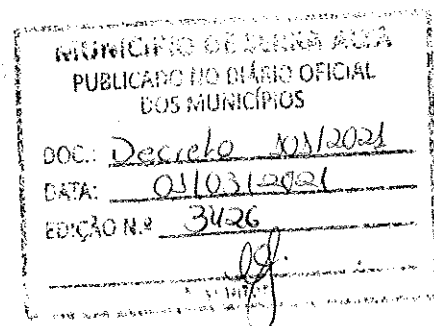 MUNICÍPIO DE SERRA ALTA
PUBLICADO NO DIÁRIO OFICIAL
DOS MUNICÍPIOS
DOC.: Decreto 101/2021
DATA: 01/03/2021
EDIÇÃO N.º 3426